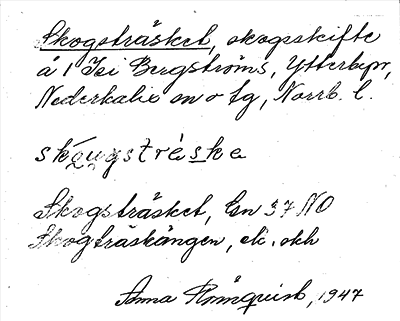 Skogsträsket, skogsskifte
å 1 Isi Bergströms, Ytterbyn,
Nederkalix sn o tg, Norrb. l.
skougstréska
Skogsträsket, En 37 NO
Skogträskängen, ek. okh
Anna Rönnquist, 1947